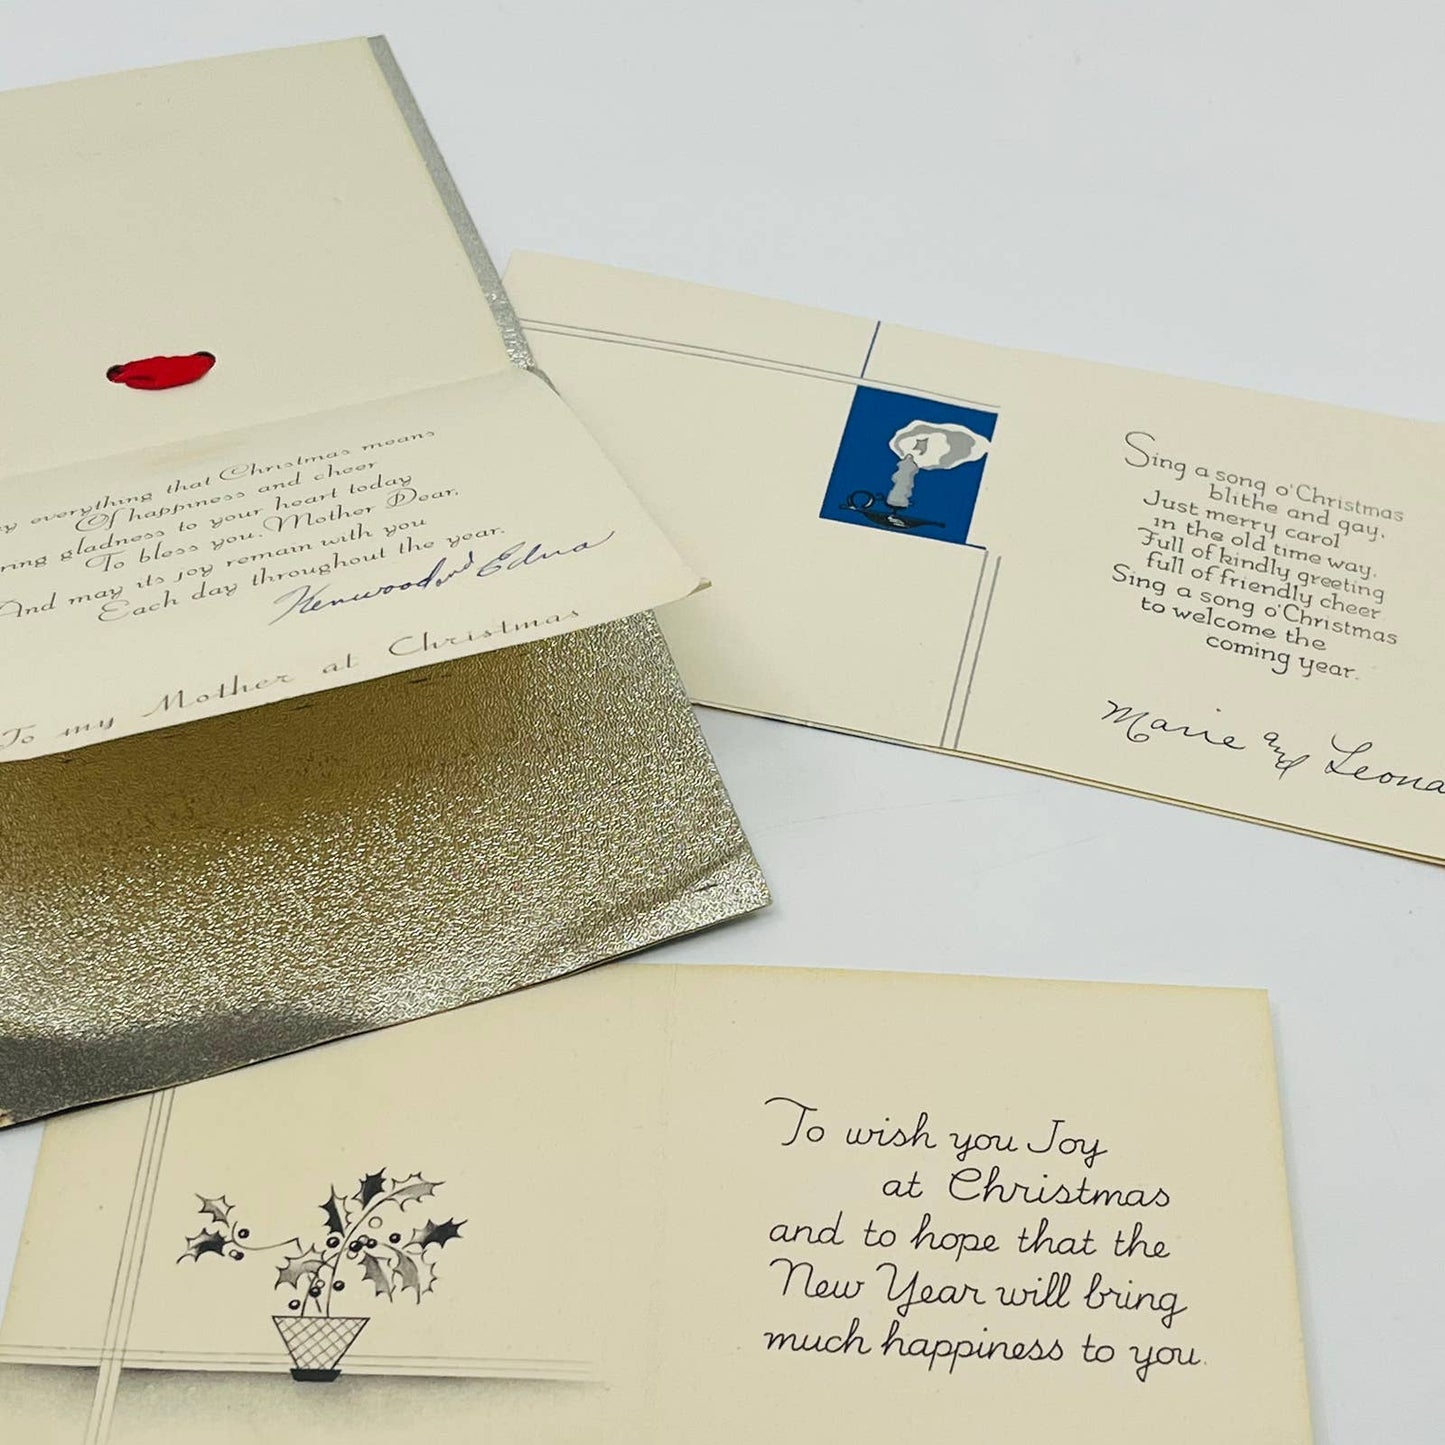 everything that Christmas means
Of happiness and cheer
gladness to your heart today
To bless you, Mother Dear,
And may its joy remain with you
Each day throughout the year.
Kenwood and Edna
To my Mother at Christmas
Sing a song o' Christmas
blithe and gay,
Just merry carol
in the old time way,
Full of kindly greeting
full of friendly cheer
Sing a song o' Christmas
to welcome the
coming year.
Marie and Leona
To wish you Joy
at Christmas
and to hope that the
New Year will bring
much happiness to you.